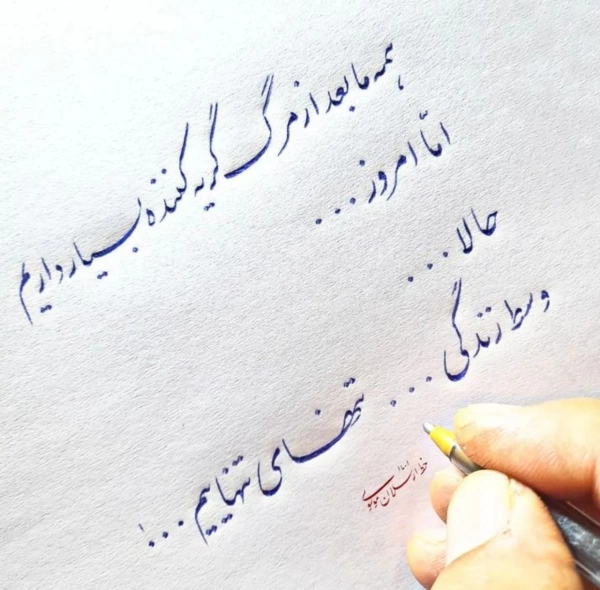 همه ما بعد از مرگ گریه کننده بسیار داریم
امّا امروز...
حالا...
وسط زندگی...
تنهای تنهاییم...!
خط ارسلان موسوی